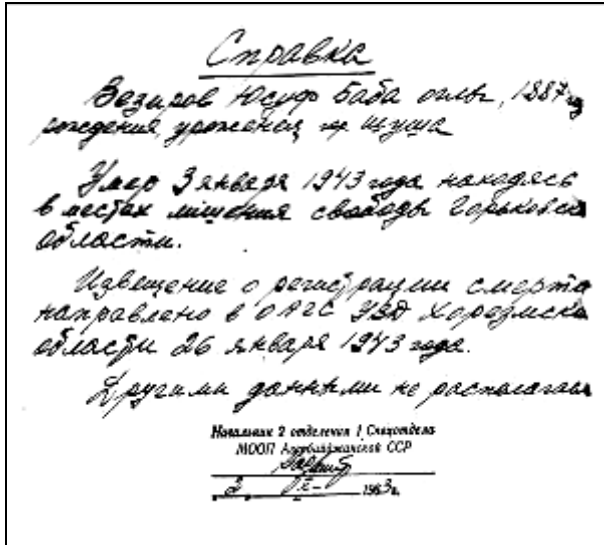 Справка
Везиров Юсуф Баба оглы, 1887 г.
рождения, уроженец гор. Шуша
Умер 3 января 1943 года находясь
в местах лишения свободы Горьковско
области.
Извещение о регистрации смерти
направлено в ОАГС УВД Хорезмско
области 26 января 1943 года.
Другими данными не располагаем
Начальник 2 отделения 1 Спецотдела
МООП Азербайджанской ССР
2 1963г.